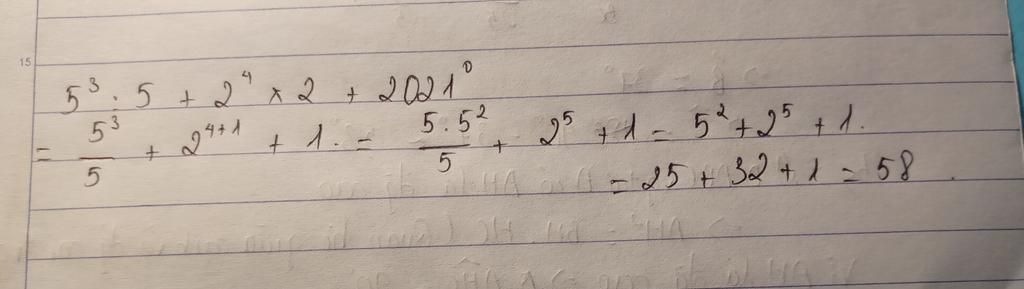 15
5³ : 5 + 2⁴ × 2 + 2021⁰
= 5³/5 + 2⁴⁺¹ + 1. = 5.5²/5 + 2⁵ + 1 = 5² + 2⁵ + 1.
= 25 + 32 + 1 = 58.